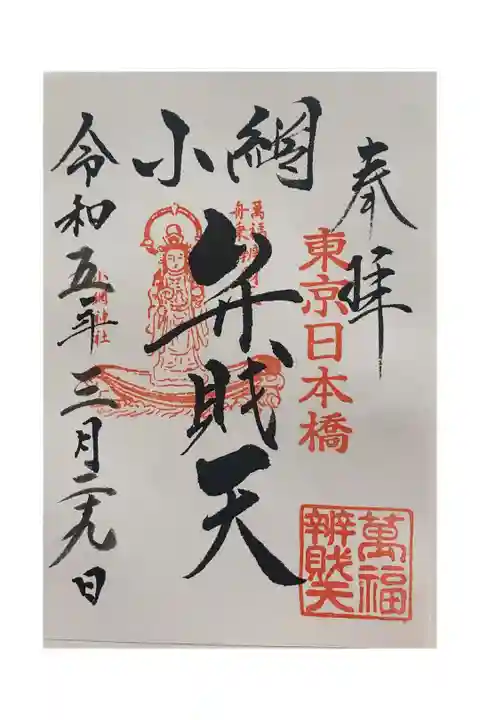 奉拝
東京日本橋
小網
弁財天
小網神社
令和五年三月二九日
萬福
辨財天